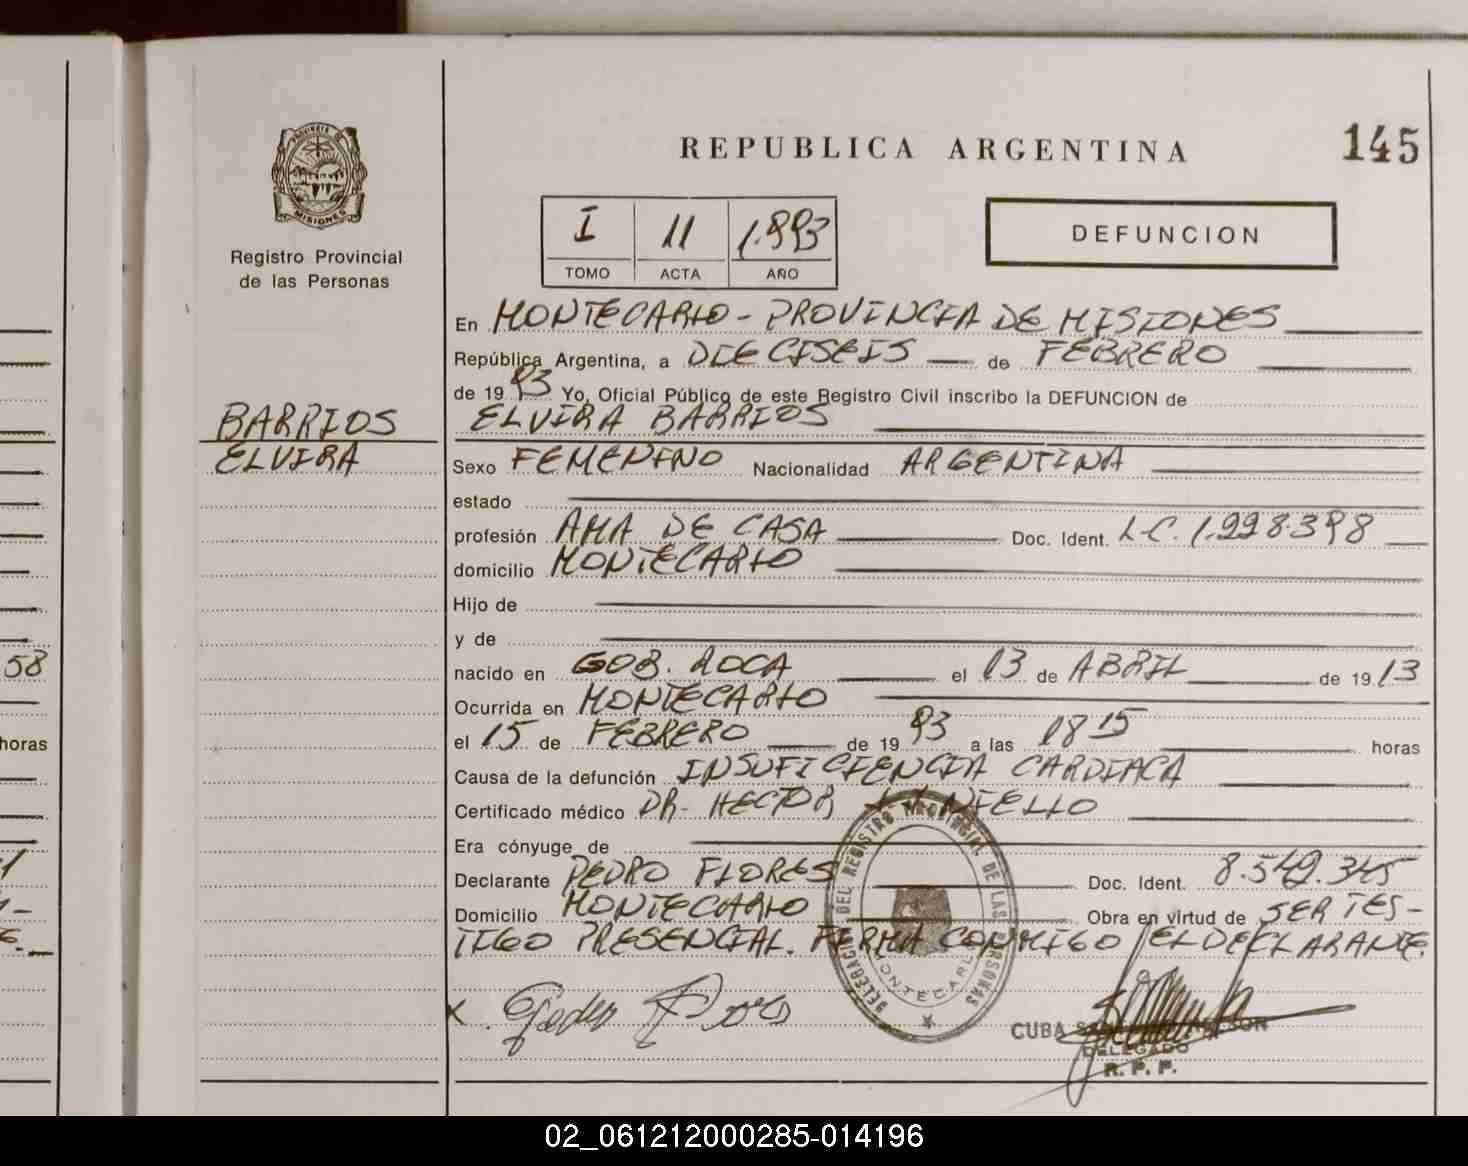 145
REPUBLICA ARGENTINA
PROVINCIA DE
MISIONES
Registro Provincial
de las Personas
I 11 1.993
TOMO ACTA AÑO
DEFUNCION
En MONTECARLO - PROVINCIA DE MISIONES
República Argentina, a DIECISEIS de FEBRERO
de 19 93 Yo, Oficial Público de este Registro Civil inscribo la DEFUNCION de
BARRIOS
ELVIRA
ELVIRA BARRIOS
Sexo FEMENINO Nacionalidad ARGENTINA
estado
profesión AMA DE CASA Doc. Ident. L-C. 1.228.398
domicilio MONTECARLO
Hijo de
y de
nacido en GOB. ROCA el 13 de ABRIL de 19 13
Ocurrida en MONTECARLO
el 15 de FEBRERO de 19 93 a las 18 15 horas
Causa de la defunción INSUFICIENCIA CARDIACA
Certificado médico DR. HECTOR
Era cónyuge de
Declarante PEDRO FLORES Doc. Ident. 8.549.345
Domicilio MONTECARLO Obra en virtud de SER TES-
TIGO PRESENCIAL. FIRMA CONMIGO EL DECLARANTE.
DELEGACION DEL REGISTRO PROVINCIAL DE LAS PERSONAS
MONTECARLO
X Pedro Flores
CUBA
DELEGADO
R. P. P.
58
horas
02_061212000285-014196